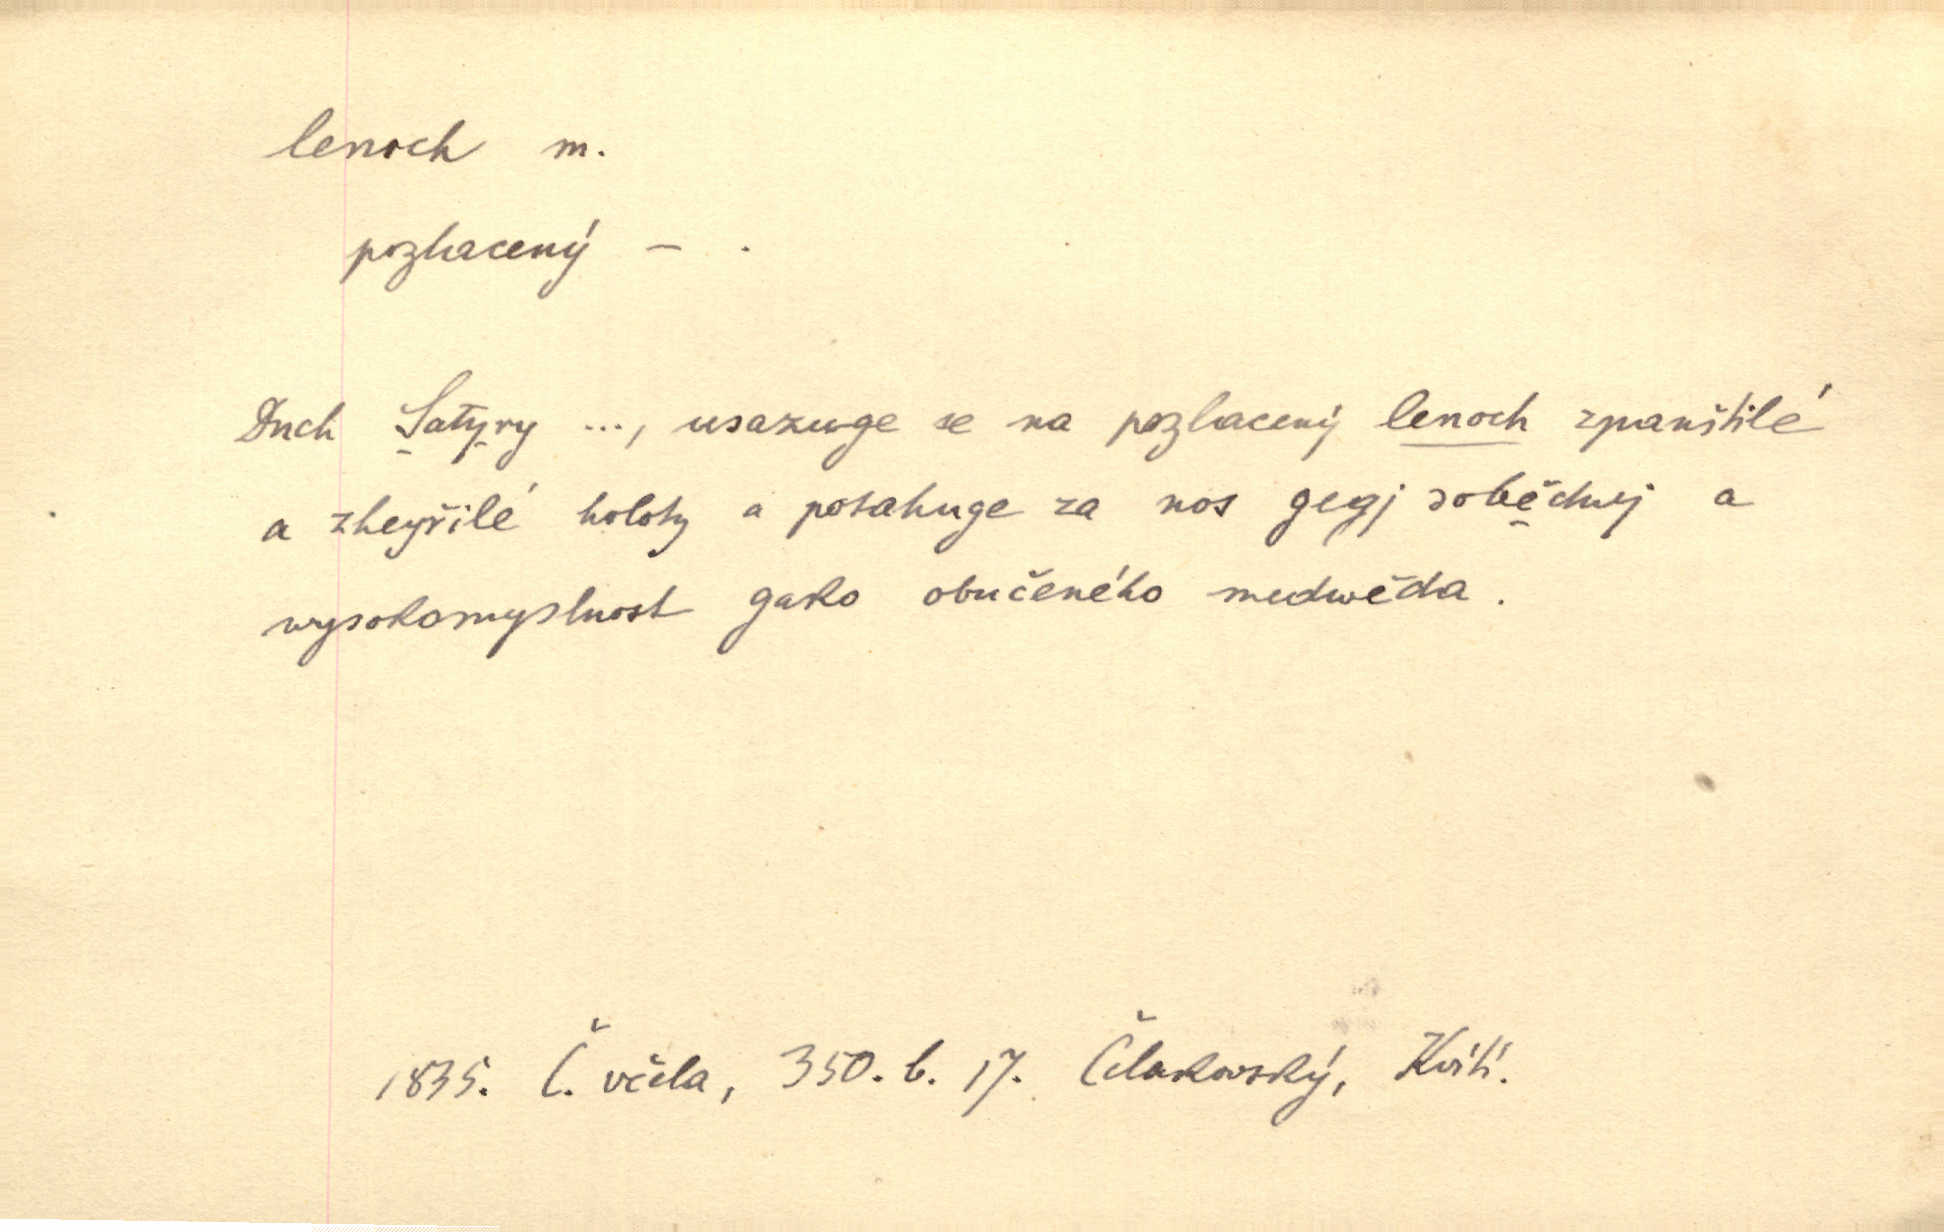 lenoch m.
pozlacený – .
Duch Satyry ..., usazuge se na pozlacený lenoch zpanštilé
a zheyřilé holoty a potahuge za nos gegj soběchuj a
wysokomyslnost gako obučeného medwěda.
1835. Č. včela, 350. b. 17. Čelakovský, Kvítí.